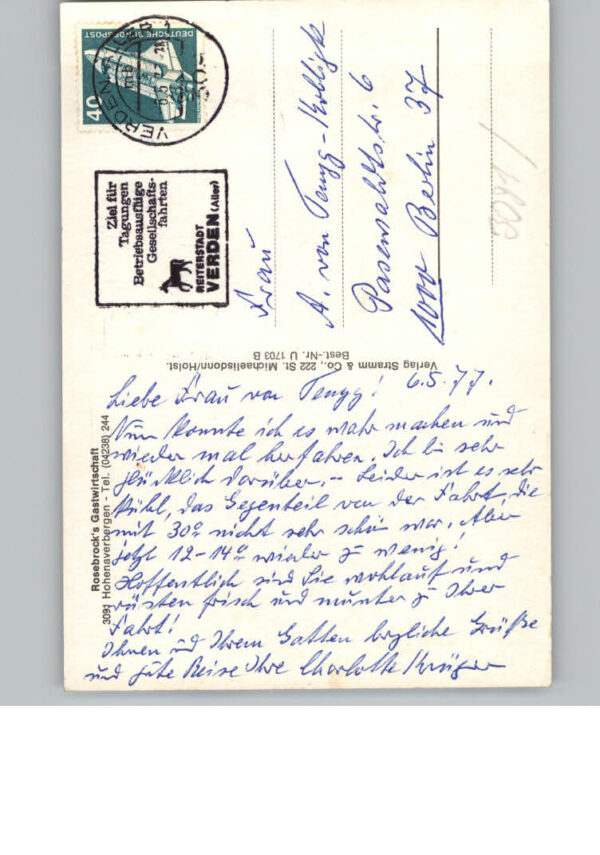 DEUTSCHE BUNDESPOST
40
VERDEN
Ziel für
Tagungen
Betriebsausflüge
Gesellschafts-
fahrten
REITERSTADT
VERDEN (Aller)
Frau
A. von
6
1000 Berlin 37
3091
Verlag Stramm & Co., 222 St. Michaelisdonn/Holst.
Best.-Nr. U 1703 B
Rosebrock's Gastwirtschaft
3091 Hohenaverbergen - Tel. (04238) 244
Liebe Frau von Tempz! 6.5.77.
Nun konnte ich es wahr machen und
wieder mal herfahren. Ich bin sehr
glücklich darüber. - Leider ist es sehr
kühl, das Gegenteil von der Fahrt, die
mit 30° nicht sehr schön war. Aber
jetzt 12-14° wieder zu wenig!
Hoffentlich sind Sie wohlauf und
rüsten frisch und munter zu Ihrer
Fahrt!
Ihnen und Ihrem Gatten herzliche Grüße
und gute Reise Ihre Charlotte Krüger